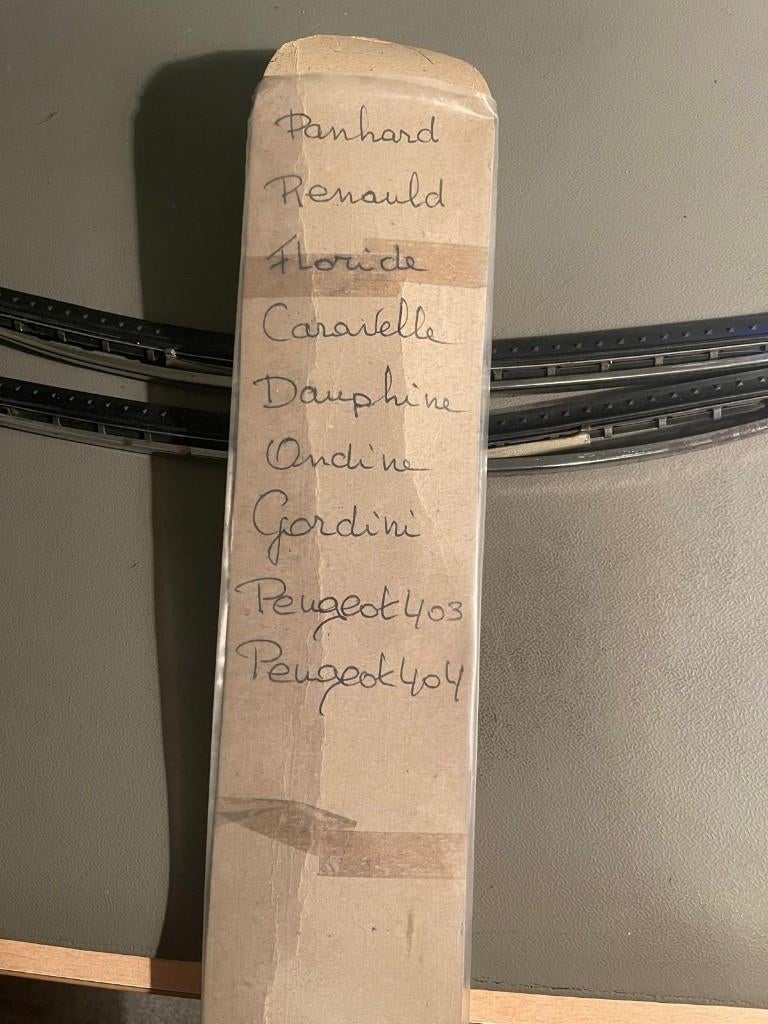 Panhard
Renauld
Floride
Caravelle
Dauphine
Ondine
Gordini
Peugeot 403
Peugeot 404